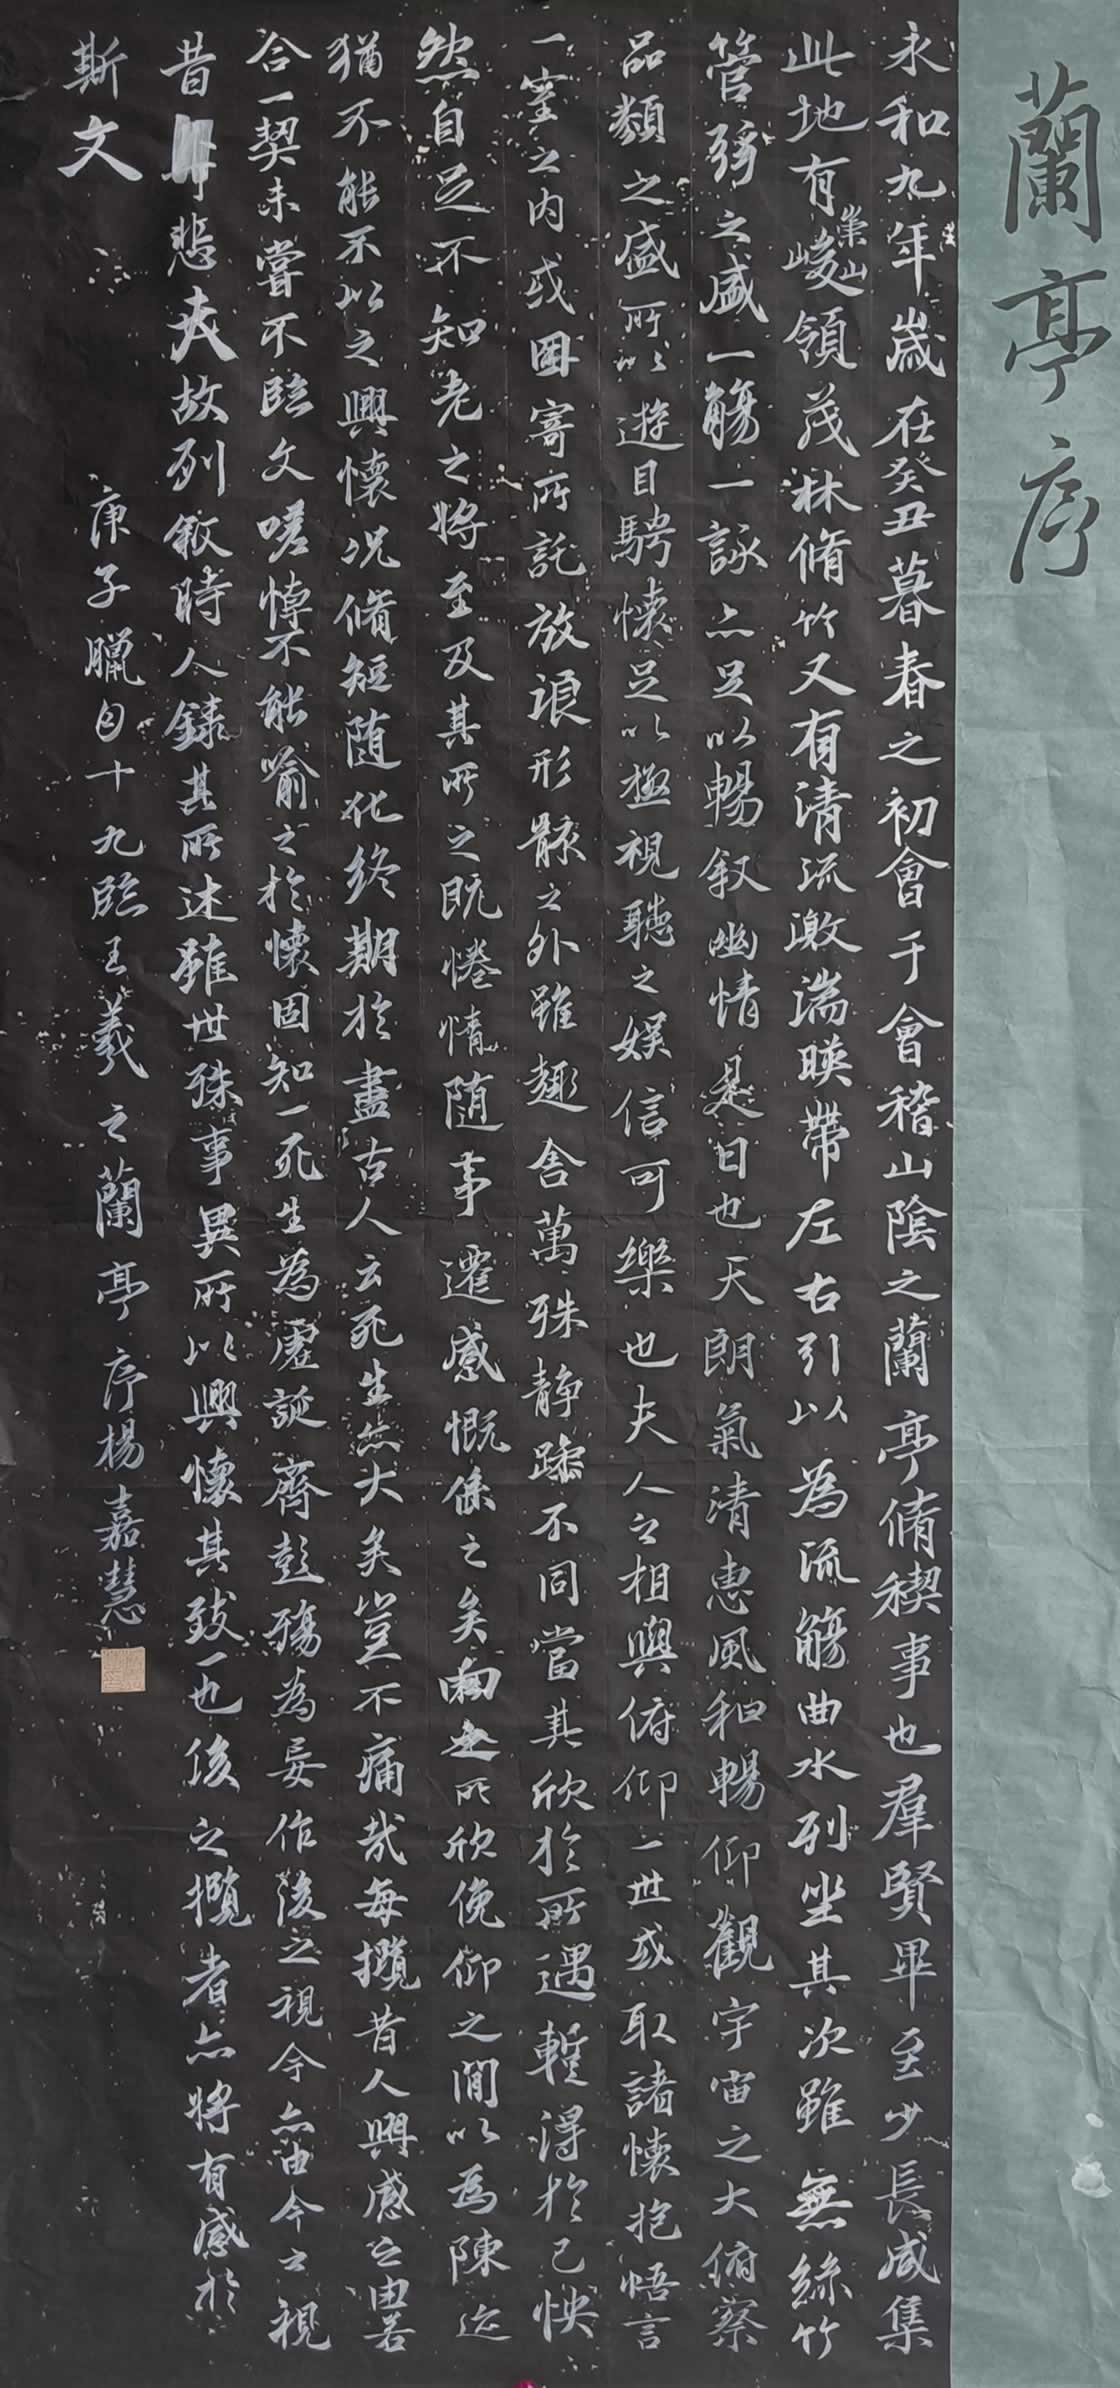 蘭亭序
永和九年歲在癸丑暮春之初會于會稽山陰之蘭亭脩稧事也羣賢畢至少長咸集
此地有崇山峻領茂林脩竹又有清流激湍暎帶左右引以為流觴曲水列坐其次雖無絲竹
管弦之盛一觴一詠亦足以暢敘幽情是日也天朗氣清惠風和暢仰觀宇宙之大俯察
品類之盛所以遊目騁懷足以極視聽之娛信可樂也夫人之相與俯仰一世或取諸懷抱悟言
一室之內或因寄所託放浪形骸之外雖趣舍萬殊静躁不同當其欣於所遇暫得於己怏
然自足不知老之將至及其所之既惓情隨事遷感慨係之矣向之所欣俛仰之閒以為陳迹
猶不能不以之興懷況脩短隨化終期於盡古人云死生亦大矣豈不痛哉每攬昔人興感之由若
合一契未嘗不臨文嗟悼不能喻之於懷固知一死生為虛誕齊彭殤為妄作後之視今亦由今之視
昔悲夫故列敘時人錄其所述雖世殊事異所以興懷其致一也後之攬者亦將有感於
斯文
庚子臘月十九臨王羲之蘭亭序楊嘉慧